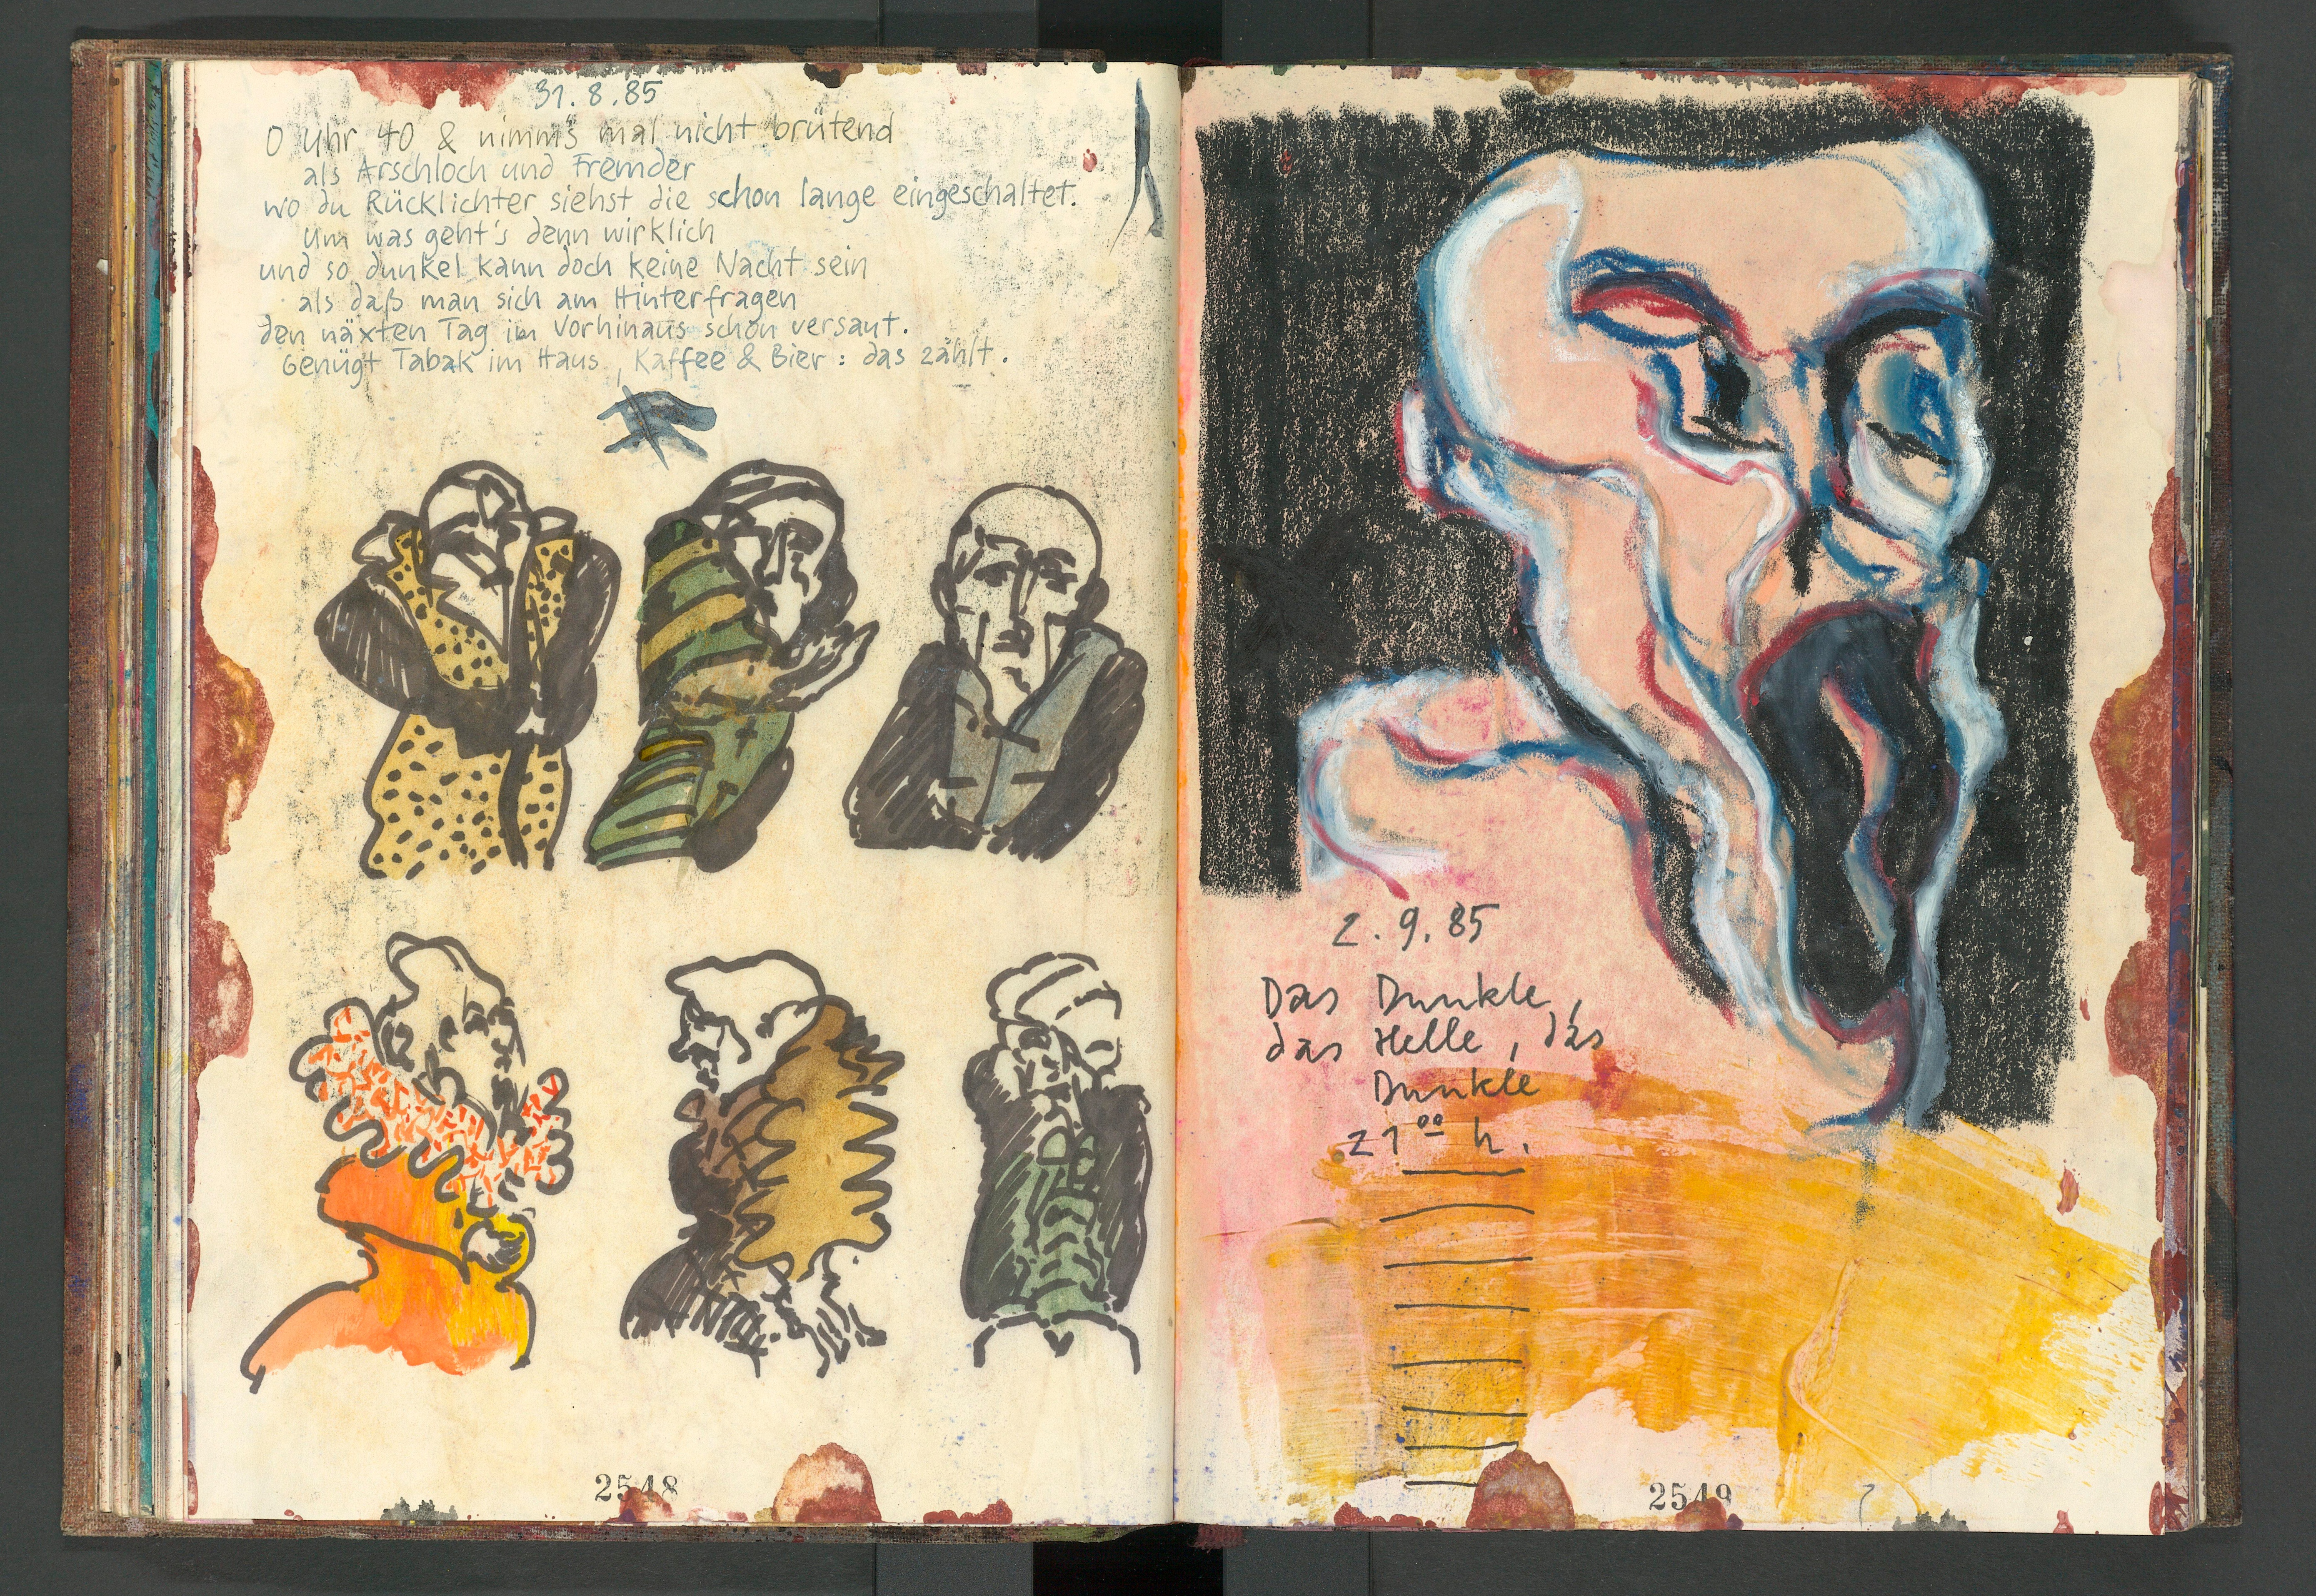 31.8.85
0 Uhr 40 & nimm's mal nicht brütend
als Arschloch und Fremder
wo du Rücklichter siehst die schon lange eingeschaltet.
Um was geht's denn wirklich
und so dunkel kann doch keine Nacht sein
als daß man sich am Hinterfragen
den näxten Tag im Vorhinaus schon versaut.
Genügt Tabak im Haus, Kaffee & Bier: das zählt.
2548
2.9.85
Das Dunkle,
das Helle, das
Dunkle
21⁰⁰ h.
2549